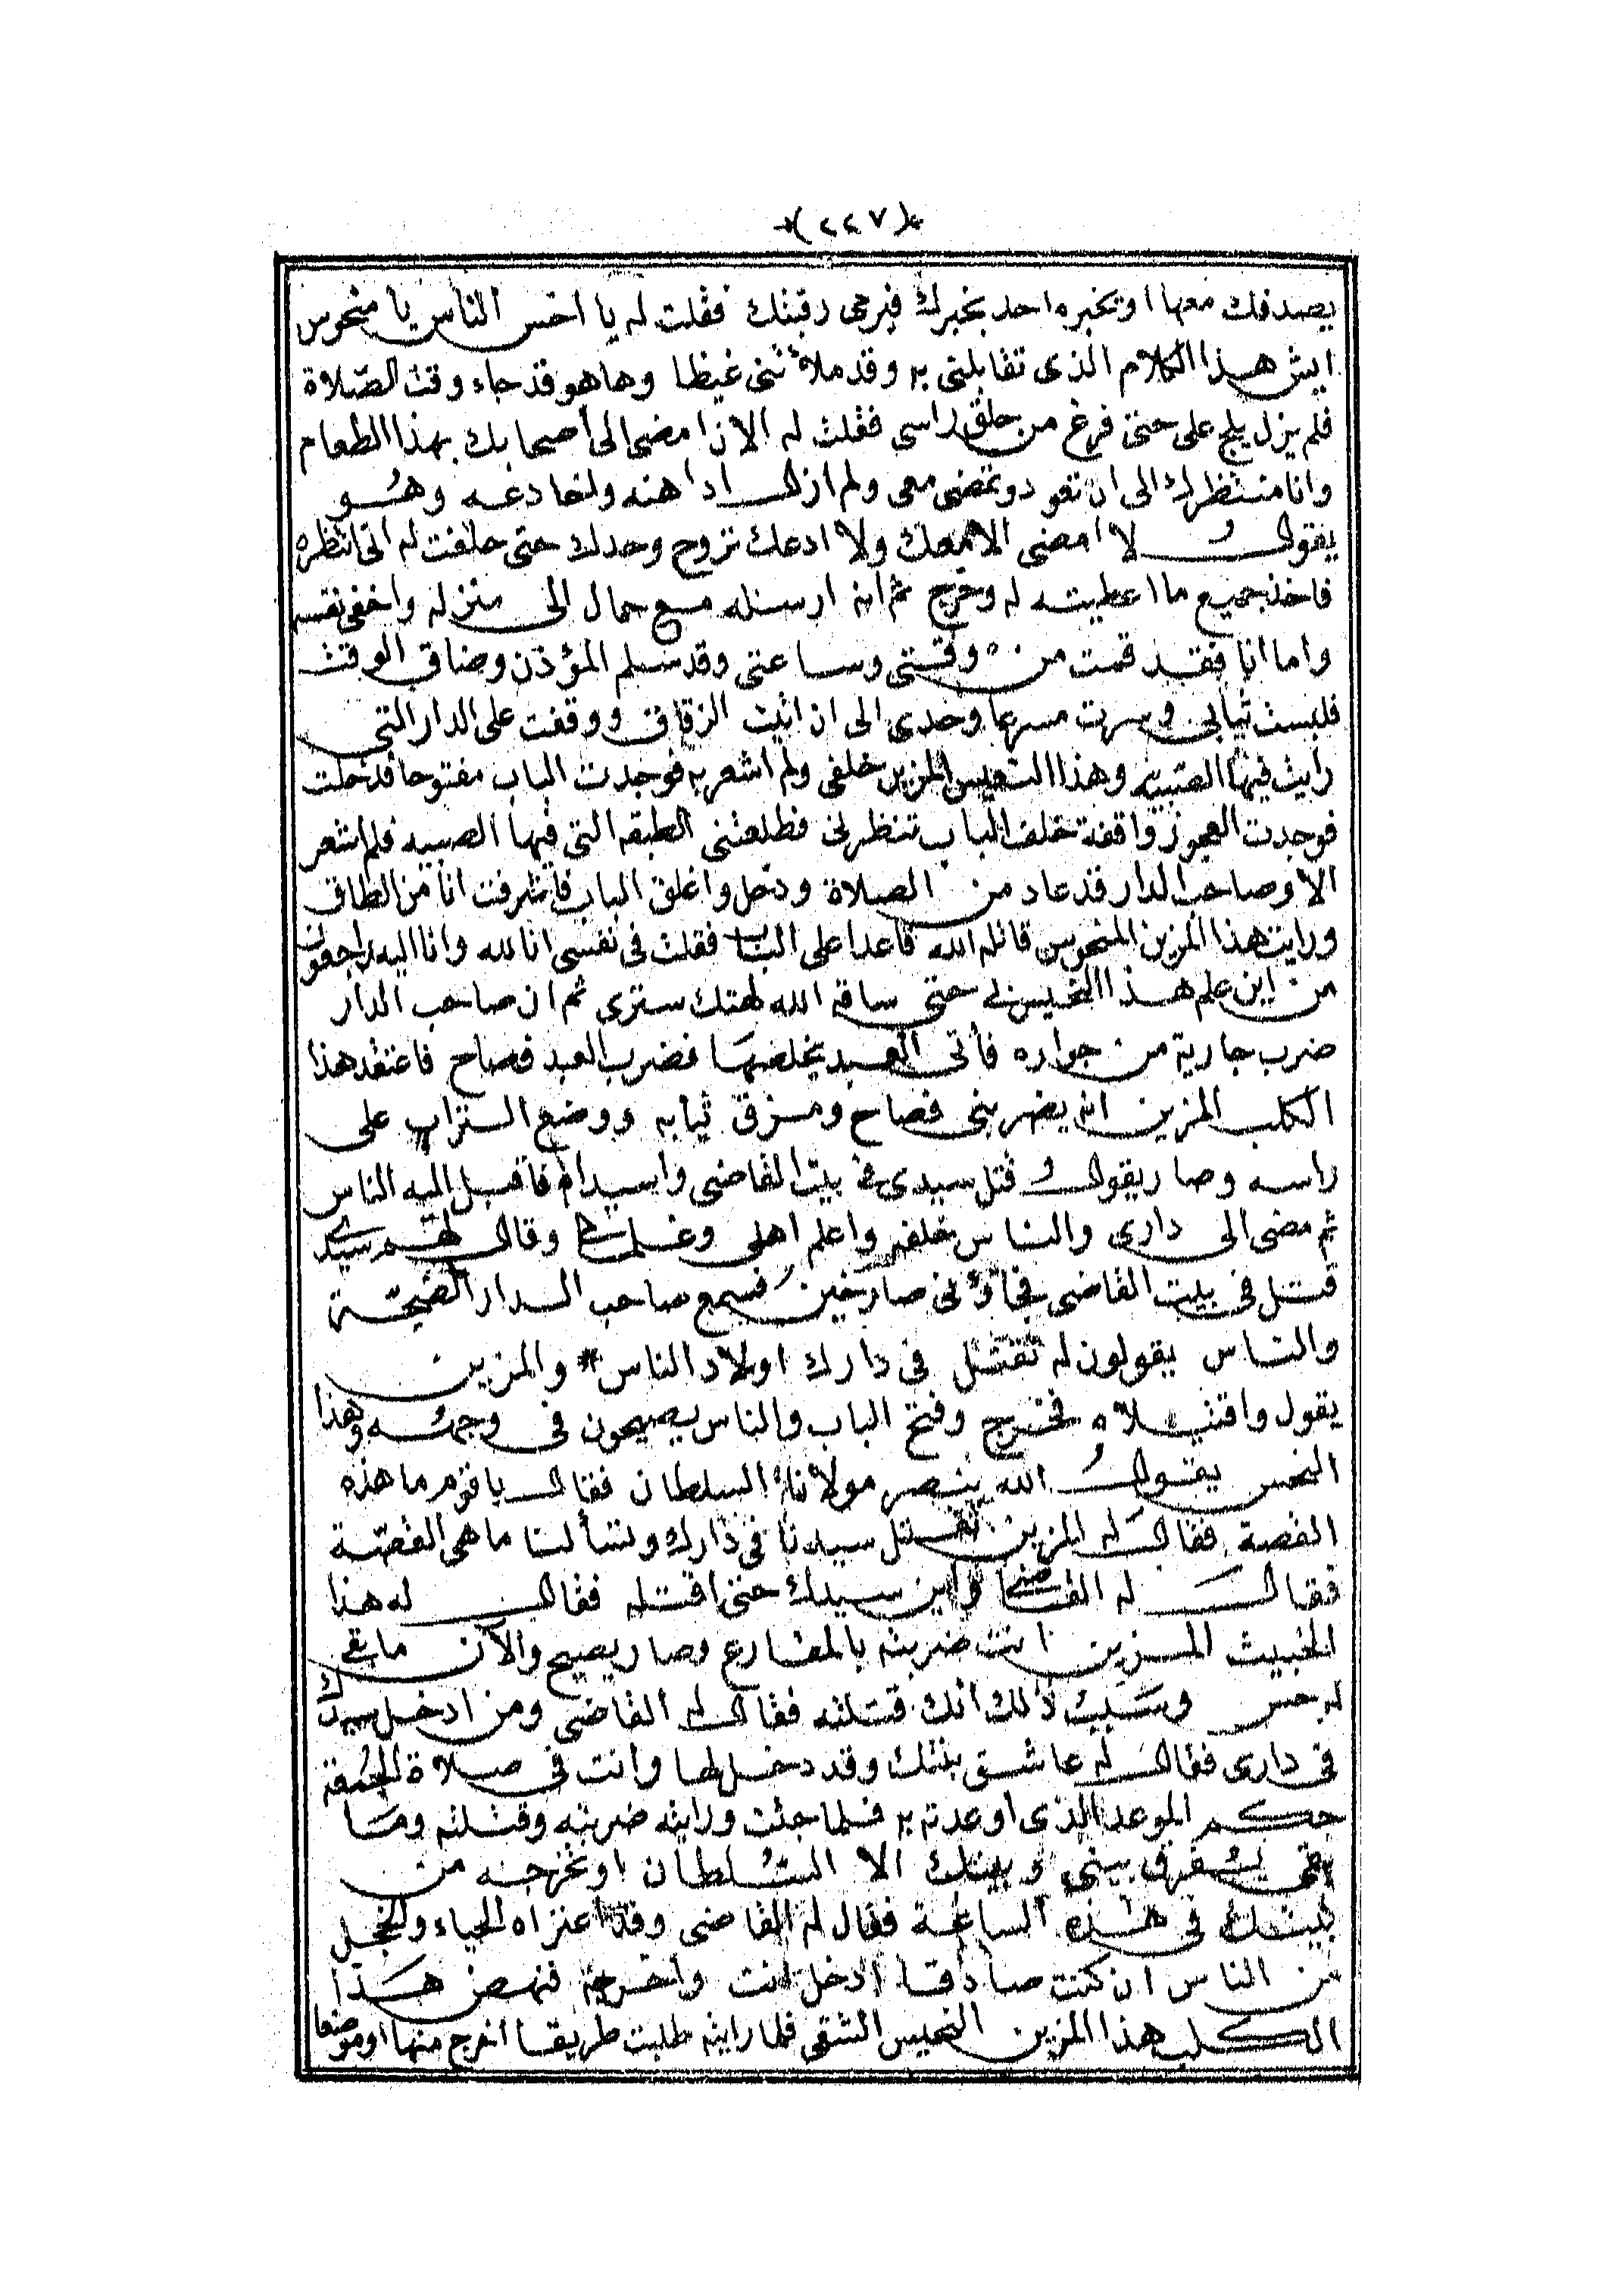 *(٢٢٧)*
يصدفك معها او يخبره احد بخبرك فيرمى رقبتك فقلت له يا اخس الناس يا منحوس
ايش هذا الكلام الذى تقابلنى به وقد ملأتنى غيظا وها هو قد جاء وقت الصلاة
فلم يزل يلج على حتى فرغ من حلق راسى فقلت له الان امضى الى أصحابك بهذا الطعام
وانا منتظرك الى ان تعود وتمضى معى ولم ازل اداهنه واخادعه وهو
يقول لا امضى الا معك ولا ادعك تروح وحدك حتى حلفت له انى انتظره
فاخذ جميع ما اعطيته له وخرج ثم انه ارسله مع حمال الى منزله واخفى نفسه
واما انا فقد قمت من وقتى وساعتى وقد سلم المؤذن وضاق الوقت
فلبست ثيابى وسرت مسرعا وحدى الى ان اتيت الزقاق ووقفت على الدار التى
رايت فيها الصبيه وهذا التعيس المزين خلفى ولم أشعر به فوجدت الباب مفتوحا فدخلت
فوجدت العجوز واقفة خلف الباب تنظرنى فطلعتنى الطبقه التى فيها الصبيه فلم اشعر
الا وصاحب الدار قد عاد من الصلاة ودخل واغلق الباب فأشرفت انا من الطاق
ورايت هذا المزين المنحوس قاتله الله قاعدا على الباب فقلت فى نفسى انا لله وانا اليه راجعون
من اين علم هذا النحيس بى حتى ساقه الله لهتك سترى ثم ان صاحب الدار
ضرب جارية من جواره فأتى العبد يخلصها فضرب العبد فصاح فاعتقد هذا
الكلب المزين انه يضربنى فصاح ومزق ثيابه ووضع التراب على
راسه وصار يقول قتل سيدى فى بيت القاضى واسيداه فاقبل اليه الناس
ثم مضى الى دارى والناس خلفه واعلم اهلى وغلمانى وقال لهم سيدى
قتل فى بيت القاضى فجاؤنى صارخين فسمع صاحب الدار الضجة
والناس يقولون له تقتل فى دارك اولاد الناس * والمزين
يقول واقتيلاه فخرج وفتح الباب والناس يصيحون فى وجهه وهذا
النحس يقول الله ينصر مولانا السلطان فقال يا قوم ما هذه
القصة فقال له المزين تقتل سيدنا فى دارك وتسألنا ما هى القصة
فقال له القاضى واين سيدك حتى اقتله فقال له هذا
الخبيث المزين انت ضربته بالمقارع وصار يصيح والآن ما بقى
له حس وسبب ذلك أنك قتلته فقال له القاضى ومن ادخل سيدك
فى دارى فقال له عاشق بنتك وقد دخل لها وانت فى صلاة الجمعة
حكم الموعد الذى اوعدته به فلما جئت ورايته ضربته وقتلته وما
بقى يفرق بينى وبينك الا السلطان او تخرجه من
بيتك فى هذه الساعة فقال له القاضى وقد اعتراه الحياء والخجل
من الناس ان كنت صادقا ادخل انت واخرجه فنهض هذا
الكلب هذا المزين النحيس الشقى فلما رايته طلبت طريقا اخرج منها او موضعا